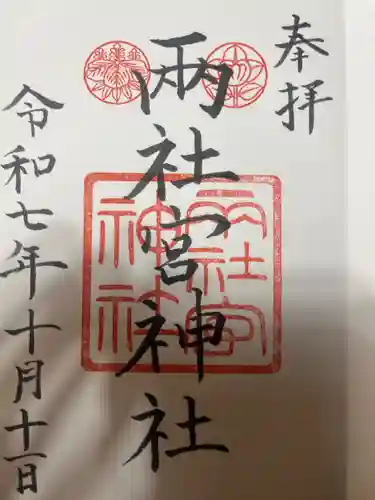 奉拝
両社宮神社
令和七年十月十一日
両社宮
神社